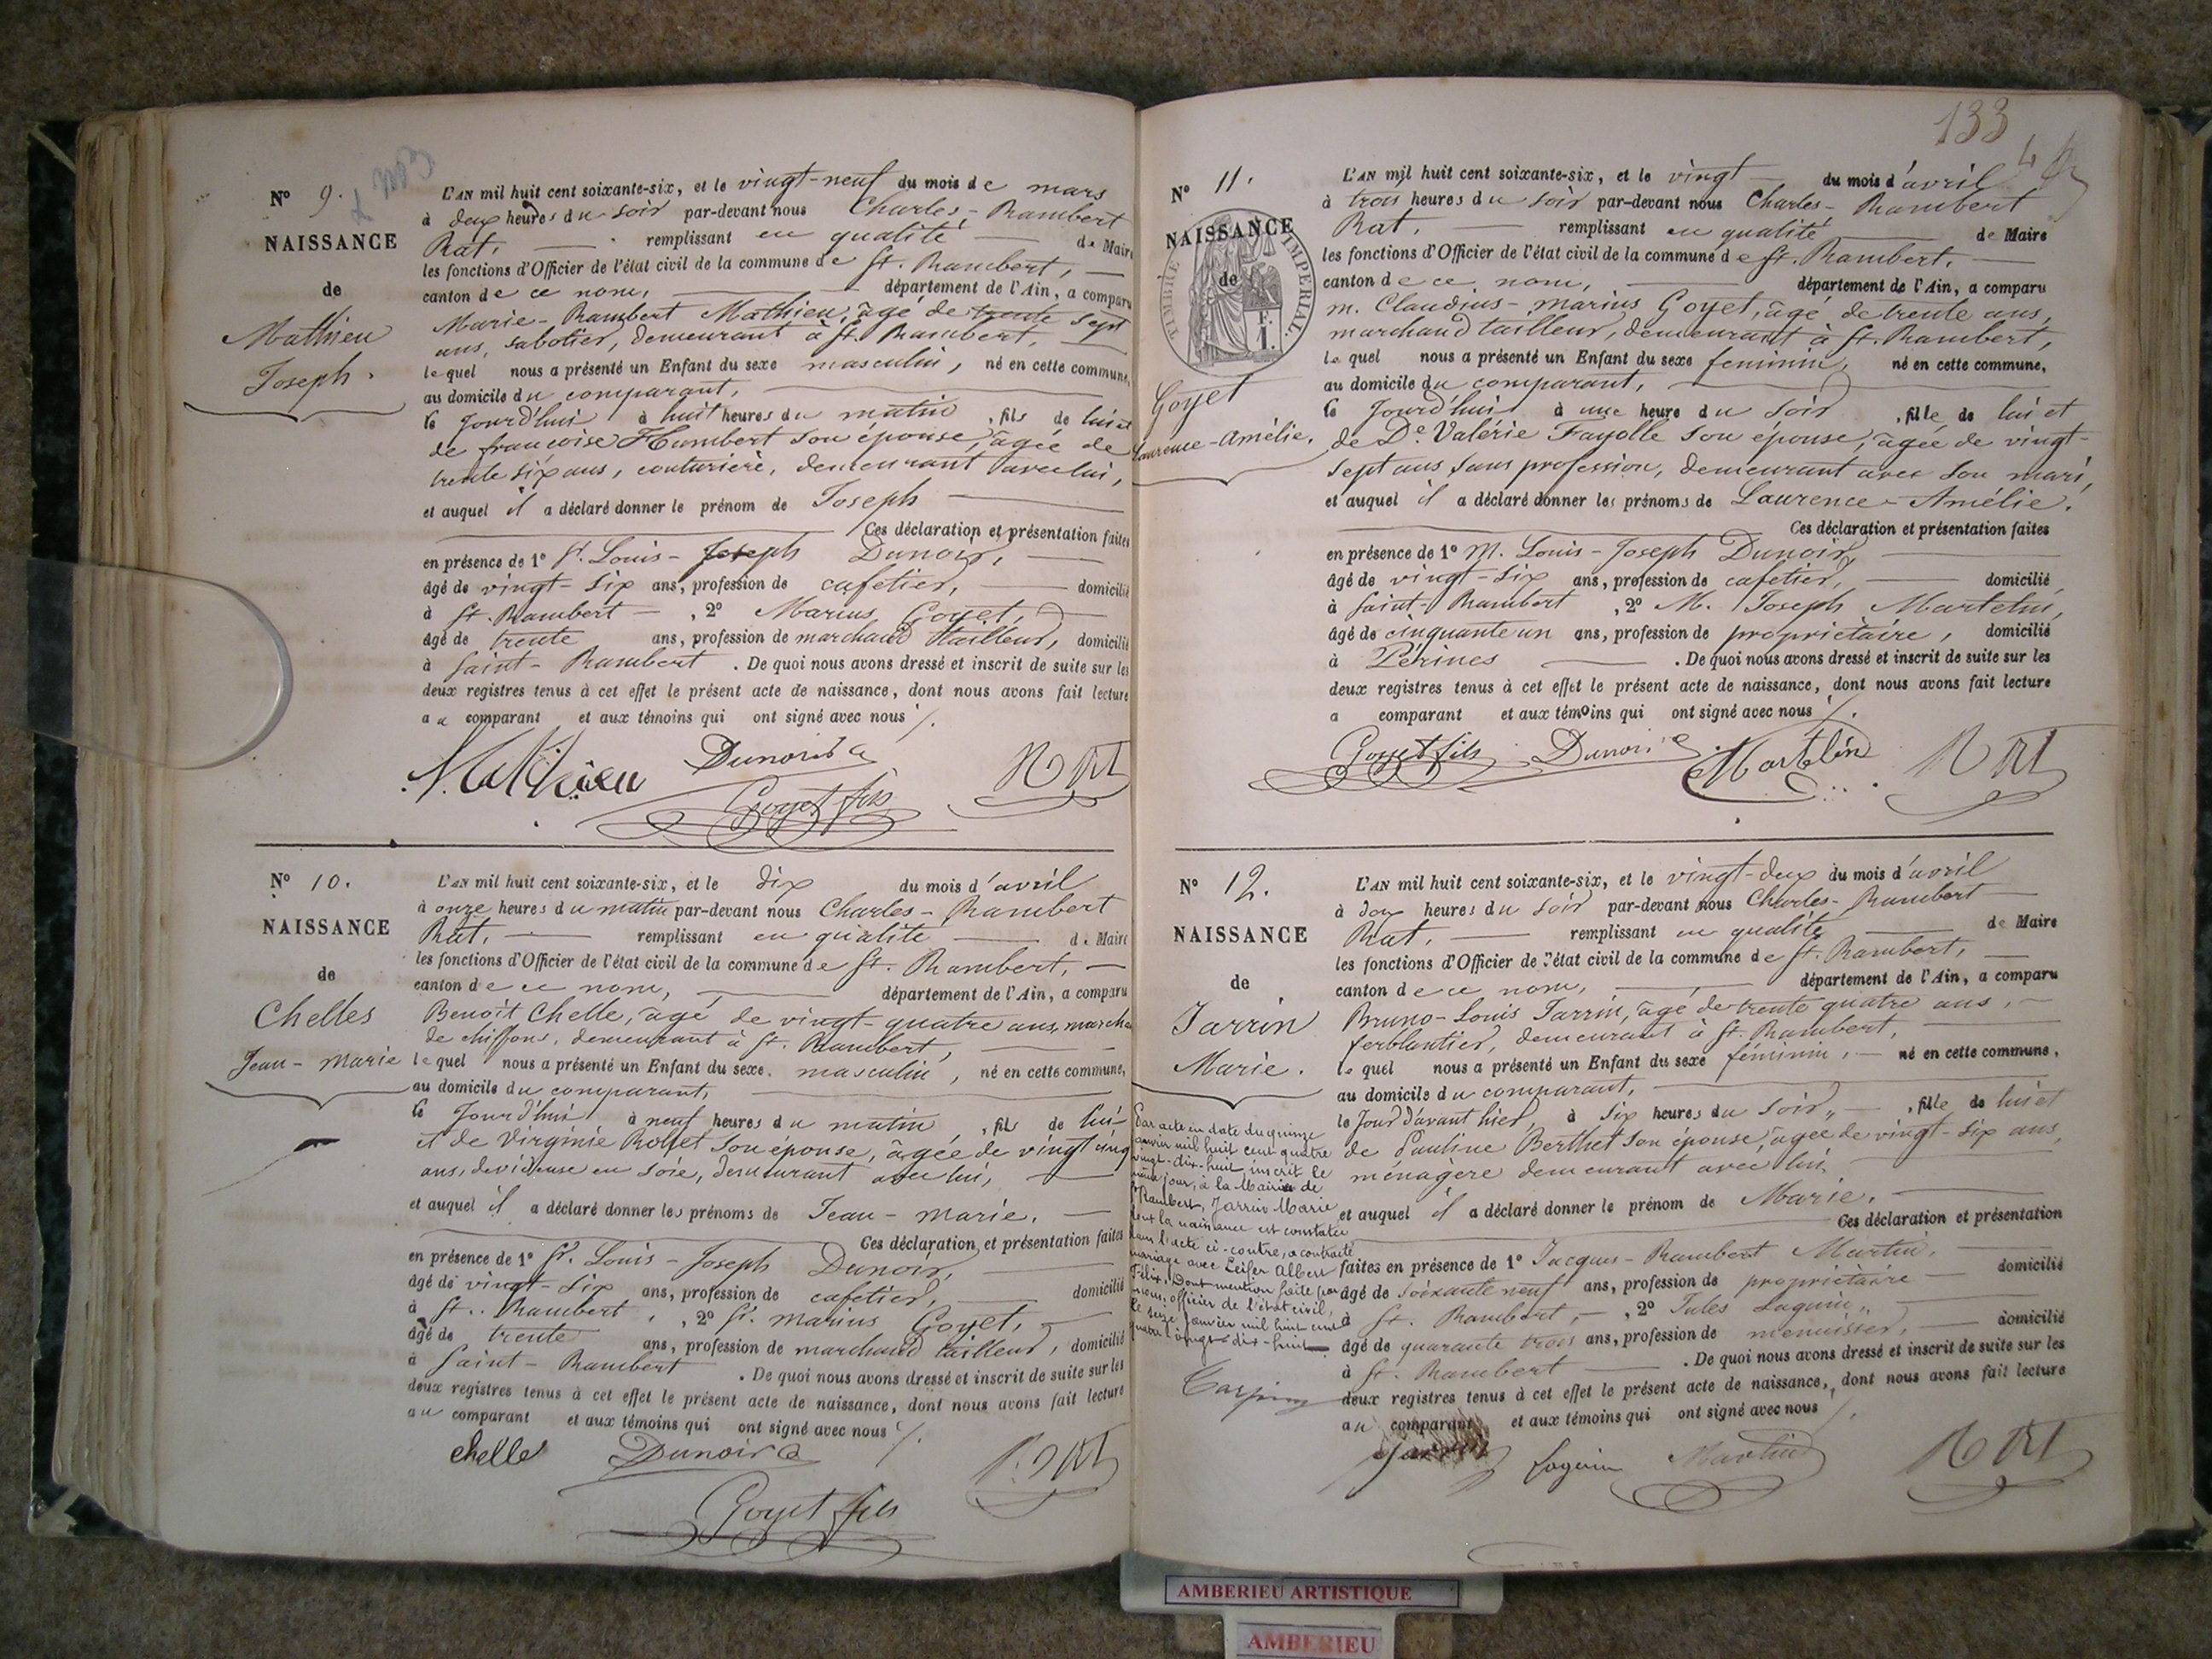 N° 9.
NAISSANCE
de
Mathieu
Joseph.
L'AN mil huit cent soixante-six, et le vingt-neuf du mois de mars
à deux heures du soir par-devant nous Charles-Rambert
Rat, remplissant en qualité de Maire
les fonctions d'Officier de l'état civil de la commune de St. Rambert,
canton de ce nom, département de l'Ain, a comparu
Marie-Rambert Mathieu, âgé de trente sept
ans, sabotier, demeurant à St. Rambert,
lequel nous a présenté un Enfant du sexe masculin, né en cette commune,
au domicile du comparant,
le jourd'hui à huit heures du matin, fils de lui et
de françoise Humbert son épouse, âgée de
trente six ans, couturière, demeurant avec lui,
et auquel il a déclaré donner le prénom de Joseph
Ces déclaration et présentation faites
en présence de 1° Sr. Louis-Joseph Dunoir,
âgé de vingt-six ans, profession de cafetier, domicilié
à St. Rambert, 2° Marius Goyet,
âgé de trente ans, profession de marchand tailleur, domicilié
à Saint-Rambert. De quoi nous avons dressé et inscrit de suite sur les
deux registres tenus à cet effet le présent acte de naissance, dont nous avons fait lecture
au comparant et aux témoins qui ont signé avec nous
Mathieu Dunoir Rat
Goyet fils
N° 10.
NAISSANCE
de
Chelles
Jean-Marie
L'AN mil huit cent soixante-six, et le dix du mois d'avril
à onze heures du matin par-devant nous Charles-Rambert
Rat, remplissant en qualité de Maire
les fonctions d'Officier de l'état civil de la commune de St. Rambert,
canton de ce nom, département de l'Ain, a comparu
Benoît Chelle, âgé de vingt-quatre ans, march
de chiffons, demeurant à St. Rambert,
lequel nous a présenté un Enfant du sexe masculin, né en cette commune,
au domicile du comparant,
le jourd'hui à neuf heures du matin, fils de lui
et de Virginie Rollet son épouse, âgée de vingt cinq
ans, devideuse en soie, demeurant avec lui,
et auquel il a déclaré donner les prénoms de Jean-Marie.
Ces déclaration et présentation faites
en présence de 1° Sr. Louis-Joseph Dunoir,
âgé de vingt-six ans, profession de cafetier, domicilié
à St. Rambert, 2° Sr. Marius Goyet,
âgé de trente ans, profession de marchand tailleur, domicilié
à Saint-Rambert. De quoi nous avons dressé et inscrit de suite sur les
deux registres tenus à cet effet le présent acte de naissance, dont nous avons fait lecture
au comparant et aux témoins qui ont signé avec nous
Chelle Dunoir Rat
Goyet fils
133
N° 11.
NAISSANCE
de
TIMBRE IMPERIAL
Goyet
Laurence-Amélie.
L'AN mil huit cent soixante-six, et le vingt du mois d'avril
à trois heures du soir par-devant nous Charles-Rambert
Rat, remplissant en qualité de Maire
les fonctions d'Officier de l'état civil de la commune de St. Rambert,
canton de ce nom, département de l'Ain, a comparu
m. Claudius-Marius Goyet, âgé de trente ans,
marchand tailleur, demeurant à St. Rambert,
lequel nous a présenté un Enfant du sexe feminin, né en cette commune,
au domicile du comparant,
le jourd'hui à une heure du soir, fille de lui et
de De. Valérie Fayolle son épouse, âgée de vingt-
sept ans sans profession, demeurant avec son mari,
et auquel il a déclaré donner les prénoms de Laurence-Amélie.
Ces déclaration et présentation faites
en présence de 1° M. Louis-Joseph Dunoir,
âgé de vingt-six ans, profession de cafetier, domicilié
à Saint-Rambert, 2° M. Joseph Martelin,
âgé de cinquante un ans, profession de propriétaire, domicilié
à Pérines. De quoi nous avons dressé et inscrit de suite sur les
deux registres tenus à cet effet le présent acte de naissance, dont nous avons fait lecture
a comparant et aux témoins qui ont signé avec nous
Goyet fils Dunoir Martelin Rat
N° 12.
NAISSANCE
de
Jarrin
Marie.
L'AN mil huit cent soixante-six, et le vingt-deux du mois d'avril
à deux heures du soir par-devant nous Charles-Rambert
Rat, remplissant en qualité de Maire
les fonctions d'Officier de l'état civil de la commune de St. Rambert,
canton de ce nom, département de l'Ain, a comparu
Bruno-Louis Jarrin, âgé de trente quatre ans,
ferblantier, demeurant à St. Rambert,
lequel nous a présenté un Enfant du sexe féminin, né en cette commune,
au domicile du comparant,
le jour d'avant hier, à six heures du soir, fille de lui et
de Pauline Berthet son épouse, âgée de vingt-six ans,
ménagère demeurant avec lui
et auquel il a déclaré donner le prénom de Marie.
Ces déclaration et présentation
faites en présence de 1° Jacques-Rambert Martin,
âgé de soixante neuf ans, profession de propriétaire domicilié
à St. Rambert, 2° Jules Laguin,
âgé de quarante trois ans, profession de menuisier, domicilié
à St. Rambert. De quoi nous avons dressé et inscrit de suite sur les
deux registres tenus à cet effet le présent acte de naissance, dont nous avons fait lecture
au comparant et aux témoins qui ont signé avec nous
Jarrin Laguin Martin Rat
Par acte en date du quinze
janvier mil huit cent quatre
vingt-dix-huit, inscrit le
même jour, à la Mairie de
St Rambert, Jarrin Marie
dont la naissance est constatée
dans l'acte ci-contre, a contracté
mariage avec Leifer Albert
Félix, Dont mention faite par
nous, officier de l'état civil,
le seize janvier mil huit cent
quatre vingt-dix-huit
AMBERIEU ARTISTIQUE
AMBERIEU